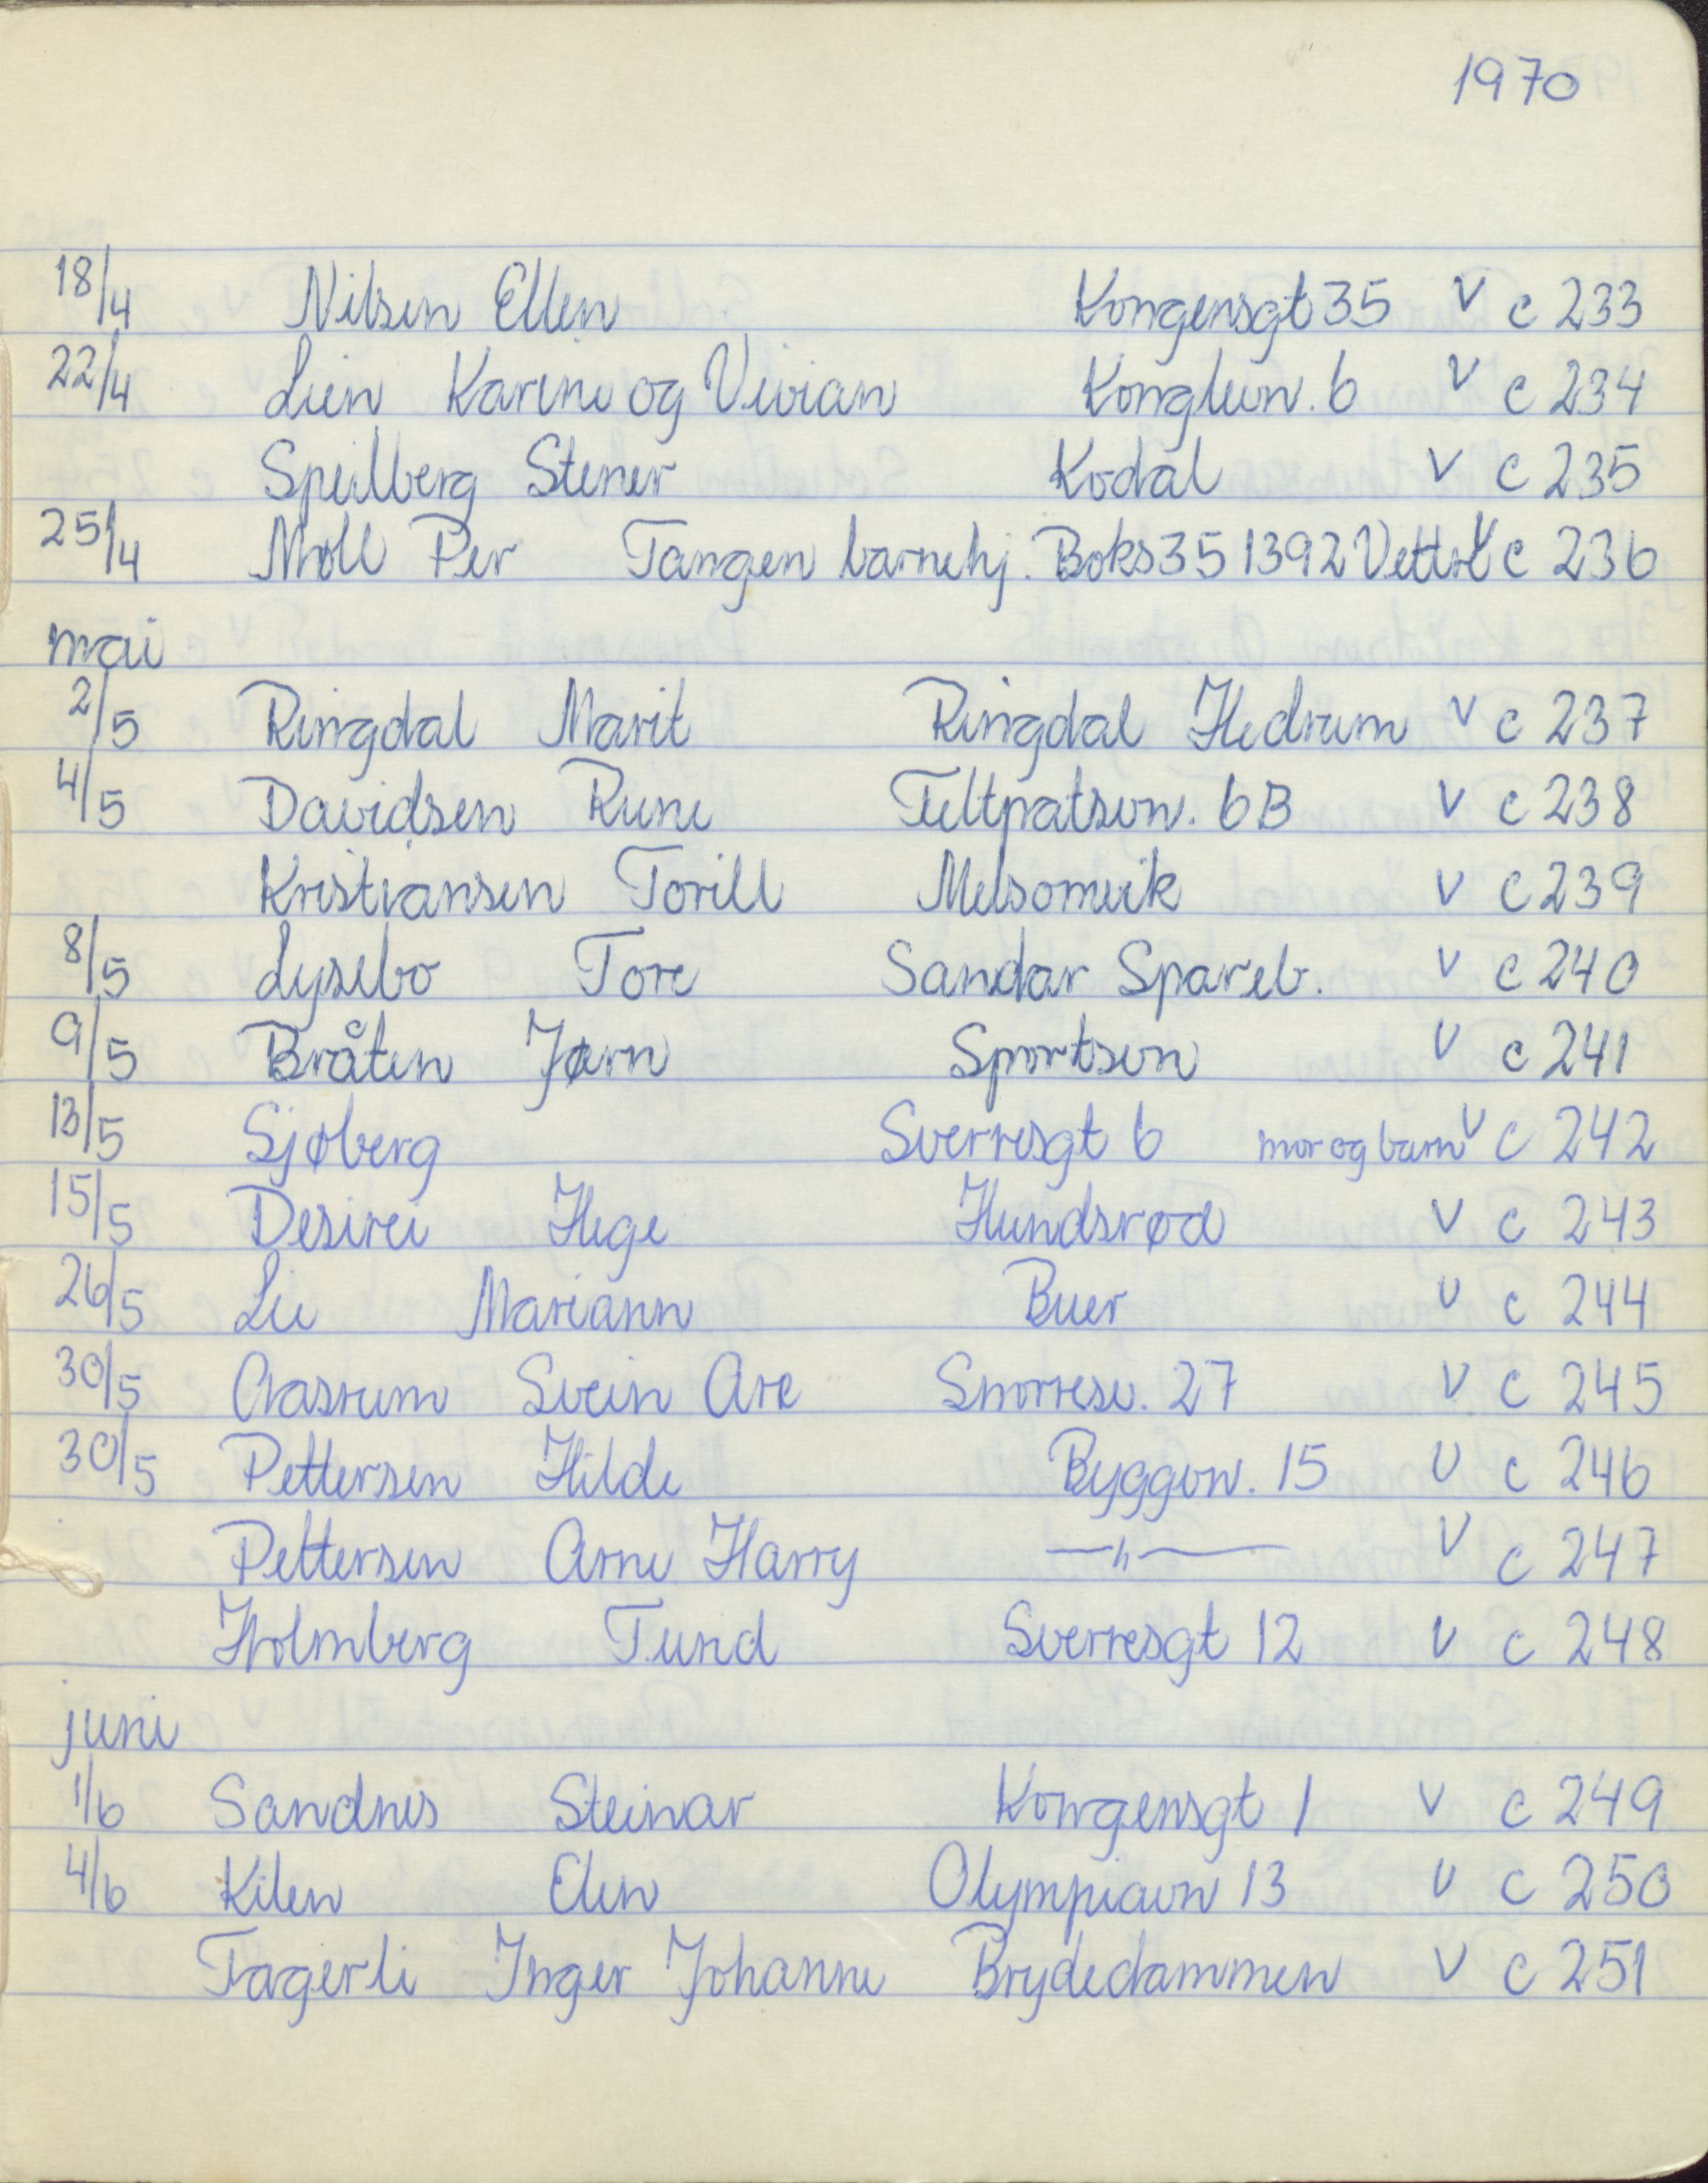 1970
18/4 Nilsen Ellen Kongensgt 35 V c 233
22/4 Lien Karine og Vivian Kongleвn. 6 V c 234
Speilberg Stener Kodal V c 235
25/4 Moll Per Tangen barnehj. Boks 35 1392 Vettre V c 236
mai
2/5 Ringdal Marit Ringdal Hedrum V c 237
4/5 Davidsen Rune Feltpatsvn. 6B V c 238
Kristiansen Torill Melsomvik V c 239
8/5 Lysebo Tore Sandar Spareb. V c 240
9/5 Bråten Jørn Sportsvn V c 241
13/5 Sjøberg Sverresgt 6 mor og barn V c 242
15/5 Desirei Hege Hundsrød V c 243
26/5 Lie Mariann Buer V c 244
30/5 Aasrum Svein Are Snorresv. 27 V c 245
30/5 Pettersen Hilde Byggvn. 15 V c 246
Pettersen Arne Harry —"— V c 247
Holmberg Sverresgt 12 V c 248
juni
1/6 Sandnes Steinar Kongensgt 1 V c 249
4/6 Kilen Elin Olympiavn 13 V c 250
Fagerli Inger Johanne Brydedammen V c 251